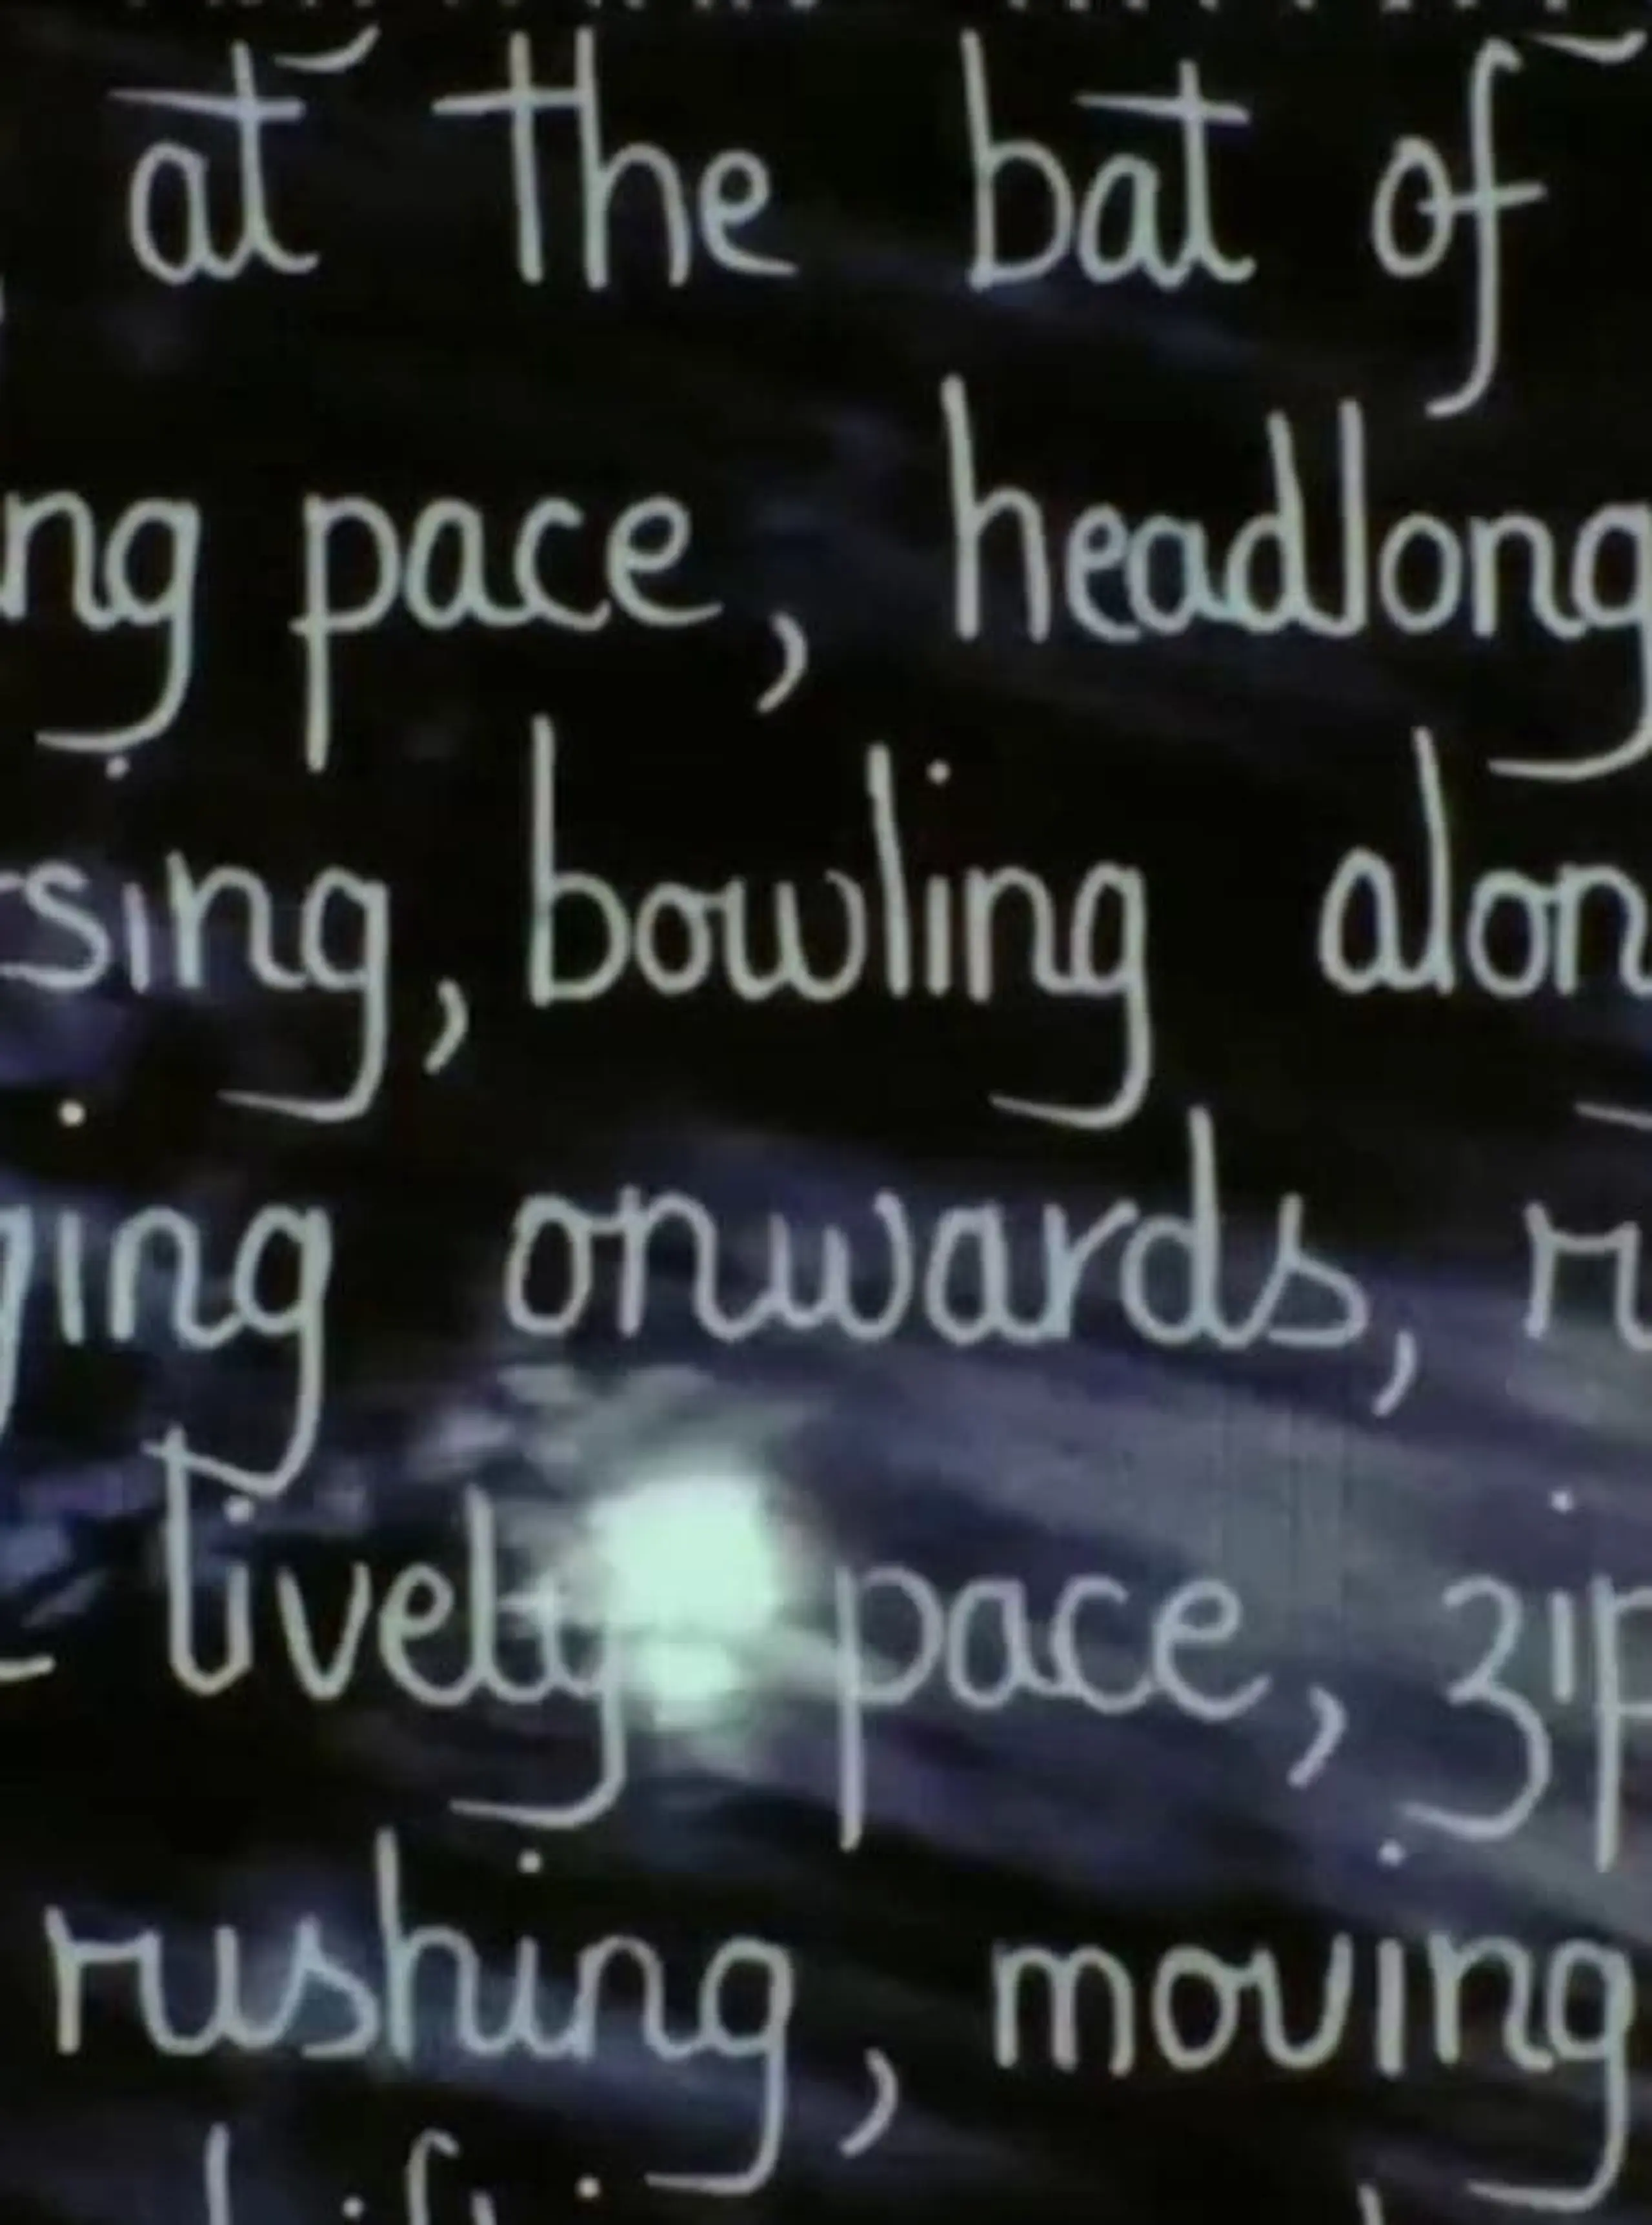 at the bat of
ng pace, headlong
sing, bowling alon
ging onwards, r
lively pace, zip
rushing, moving